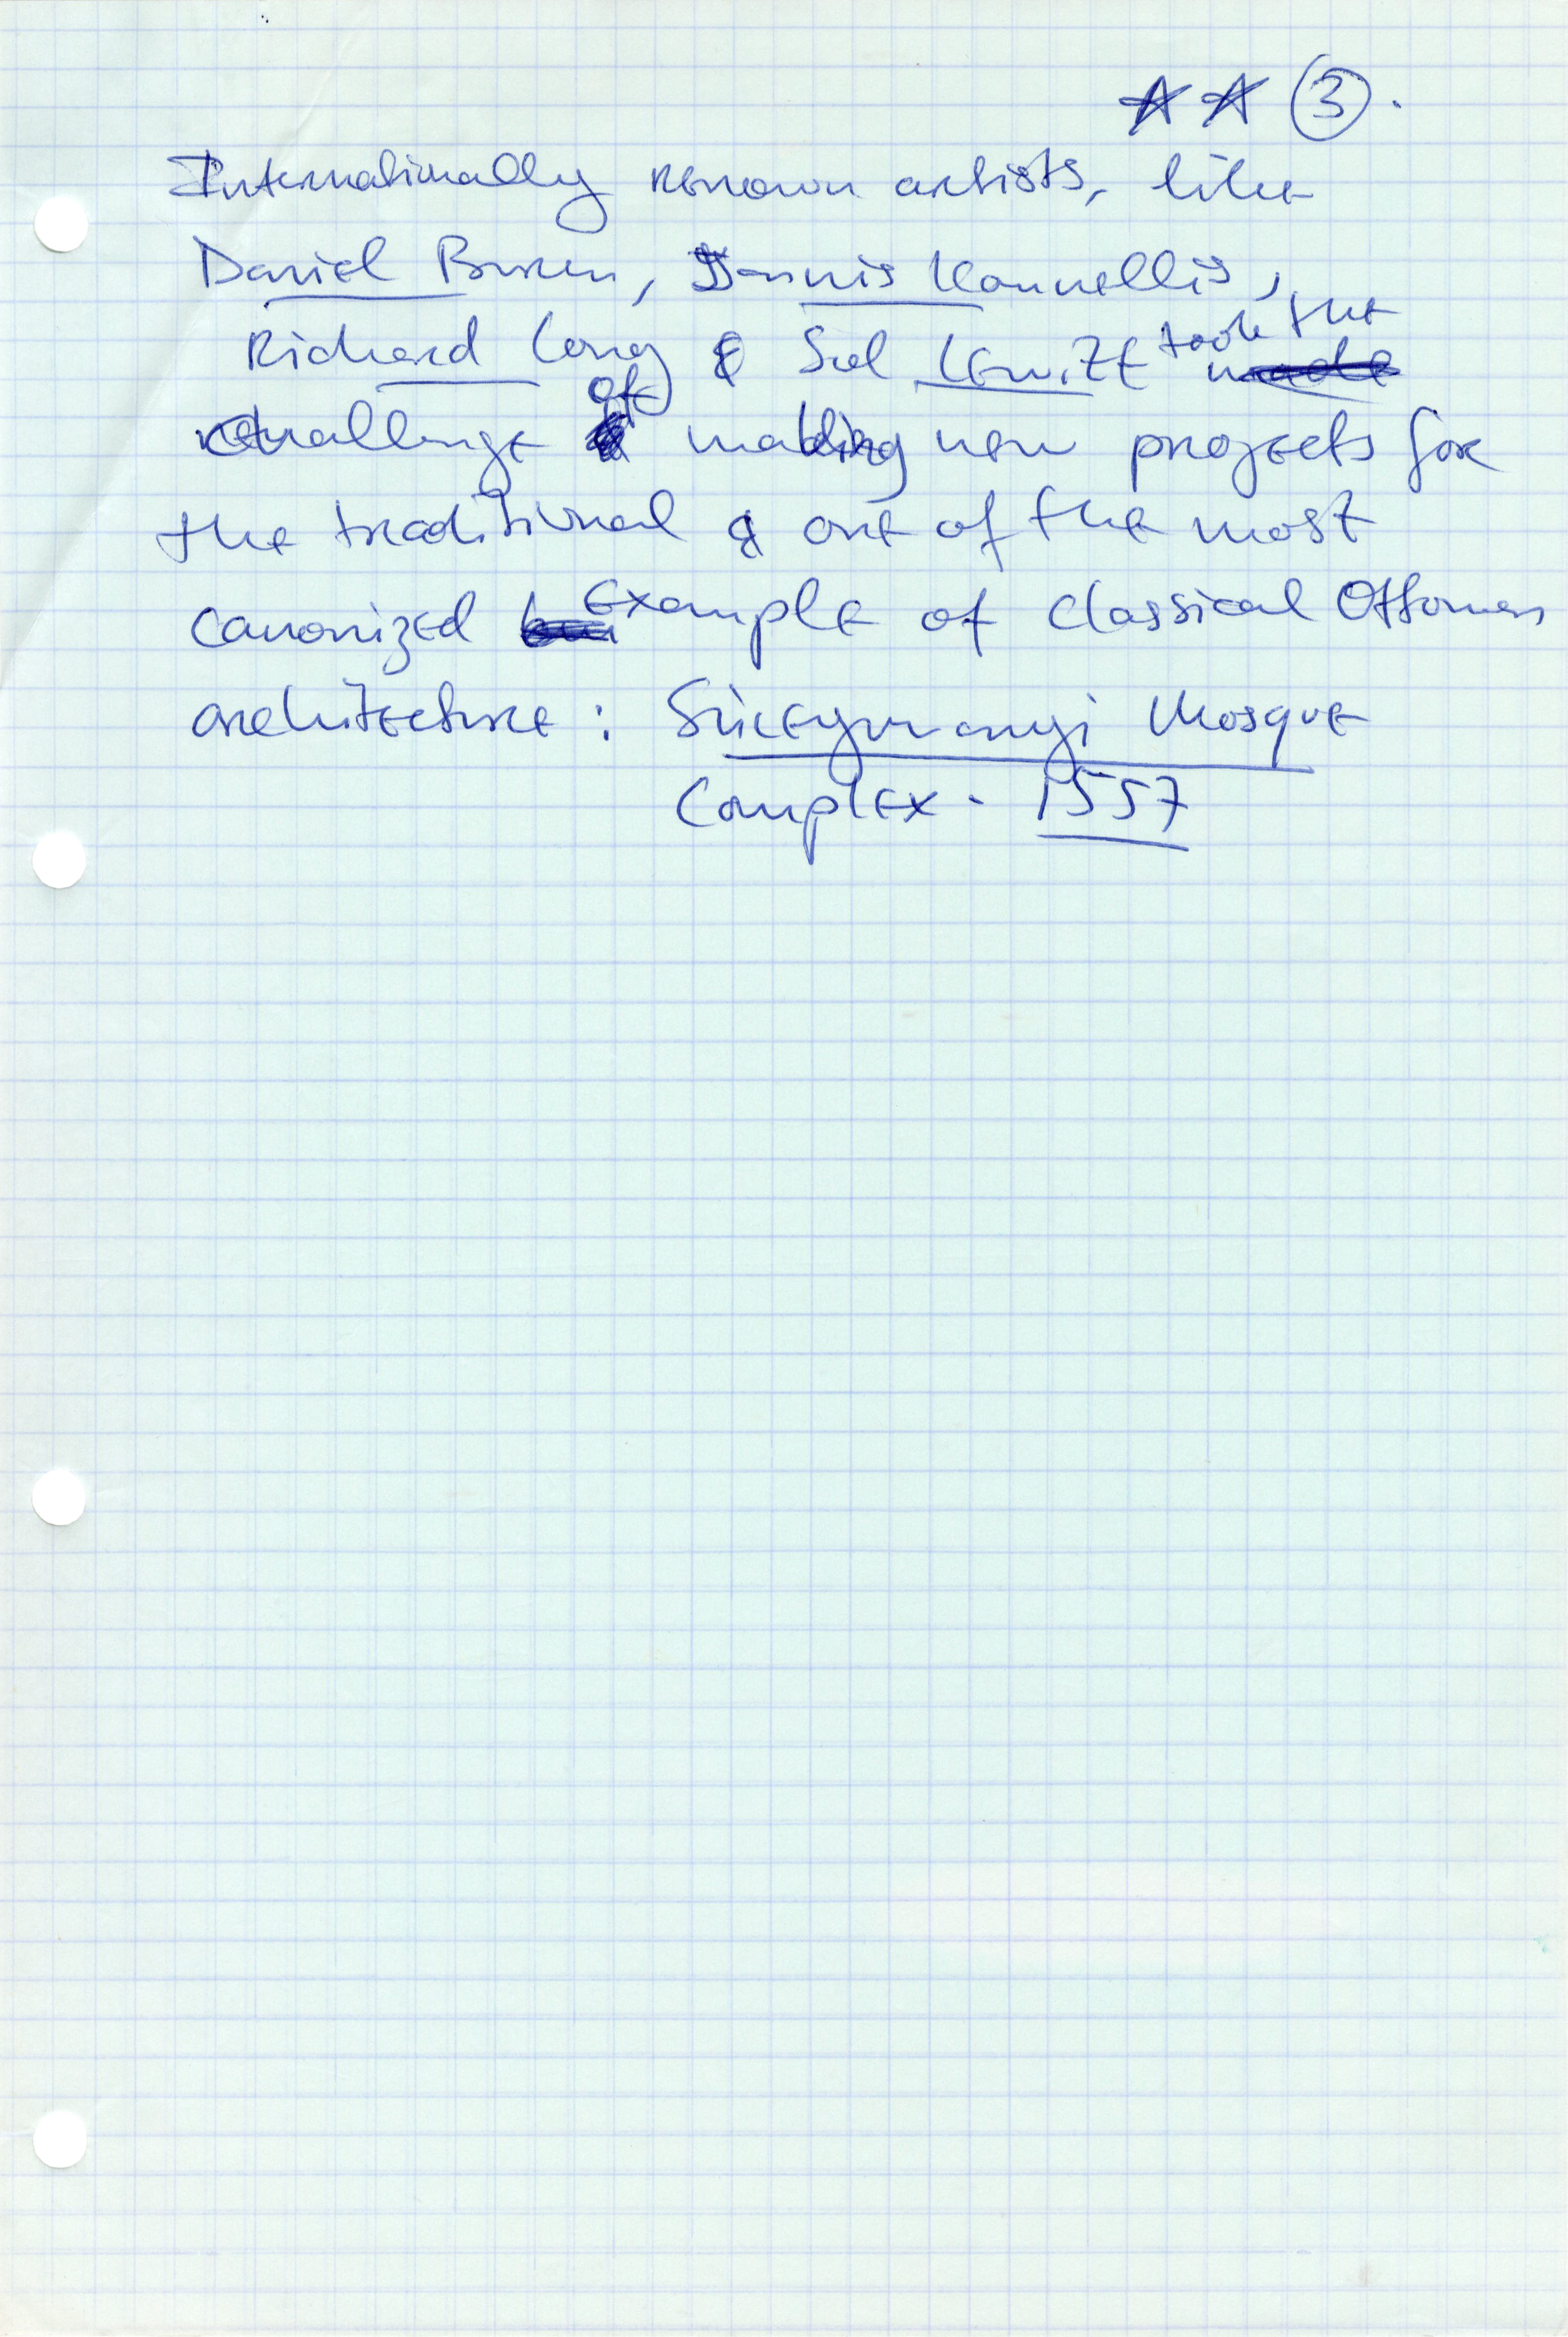 ☆ ☆ ③.
Internationally renown artists, like
Daniel Buren, Jannis Kounellis,
Richard Long & Sol Lewitt took the
challenge of making new projects for
the traditional & one of the most
canonized example of classical Ottoman
architecture: Süleymanyi Mosque
Complex - 1557